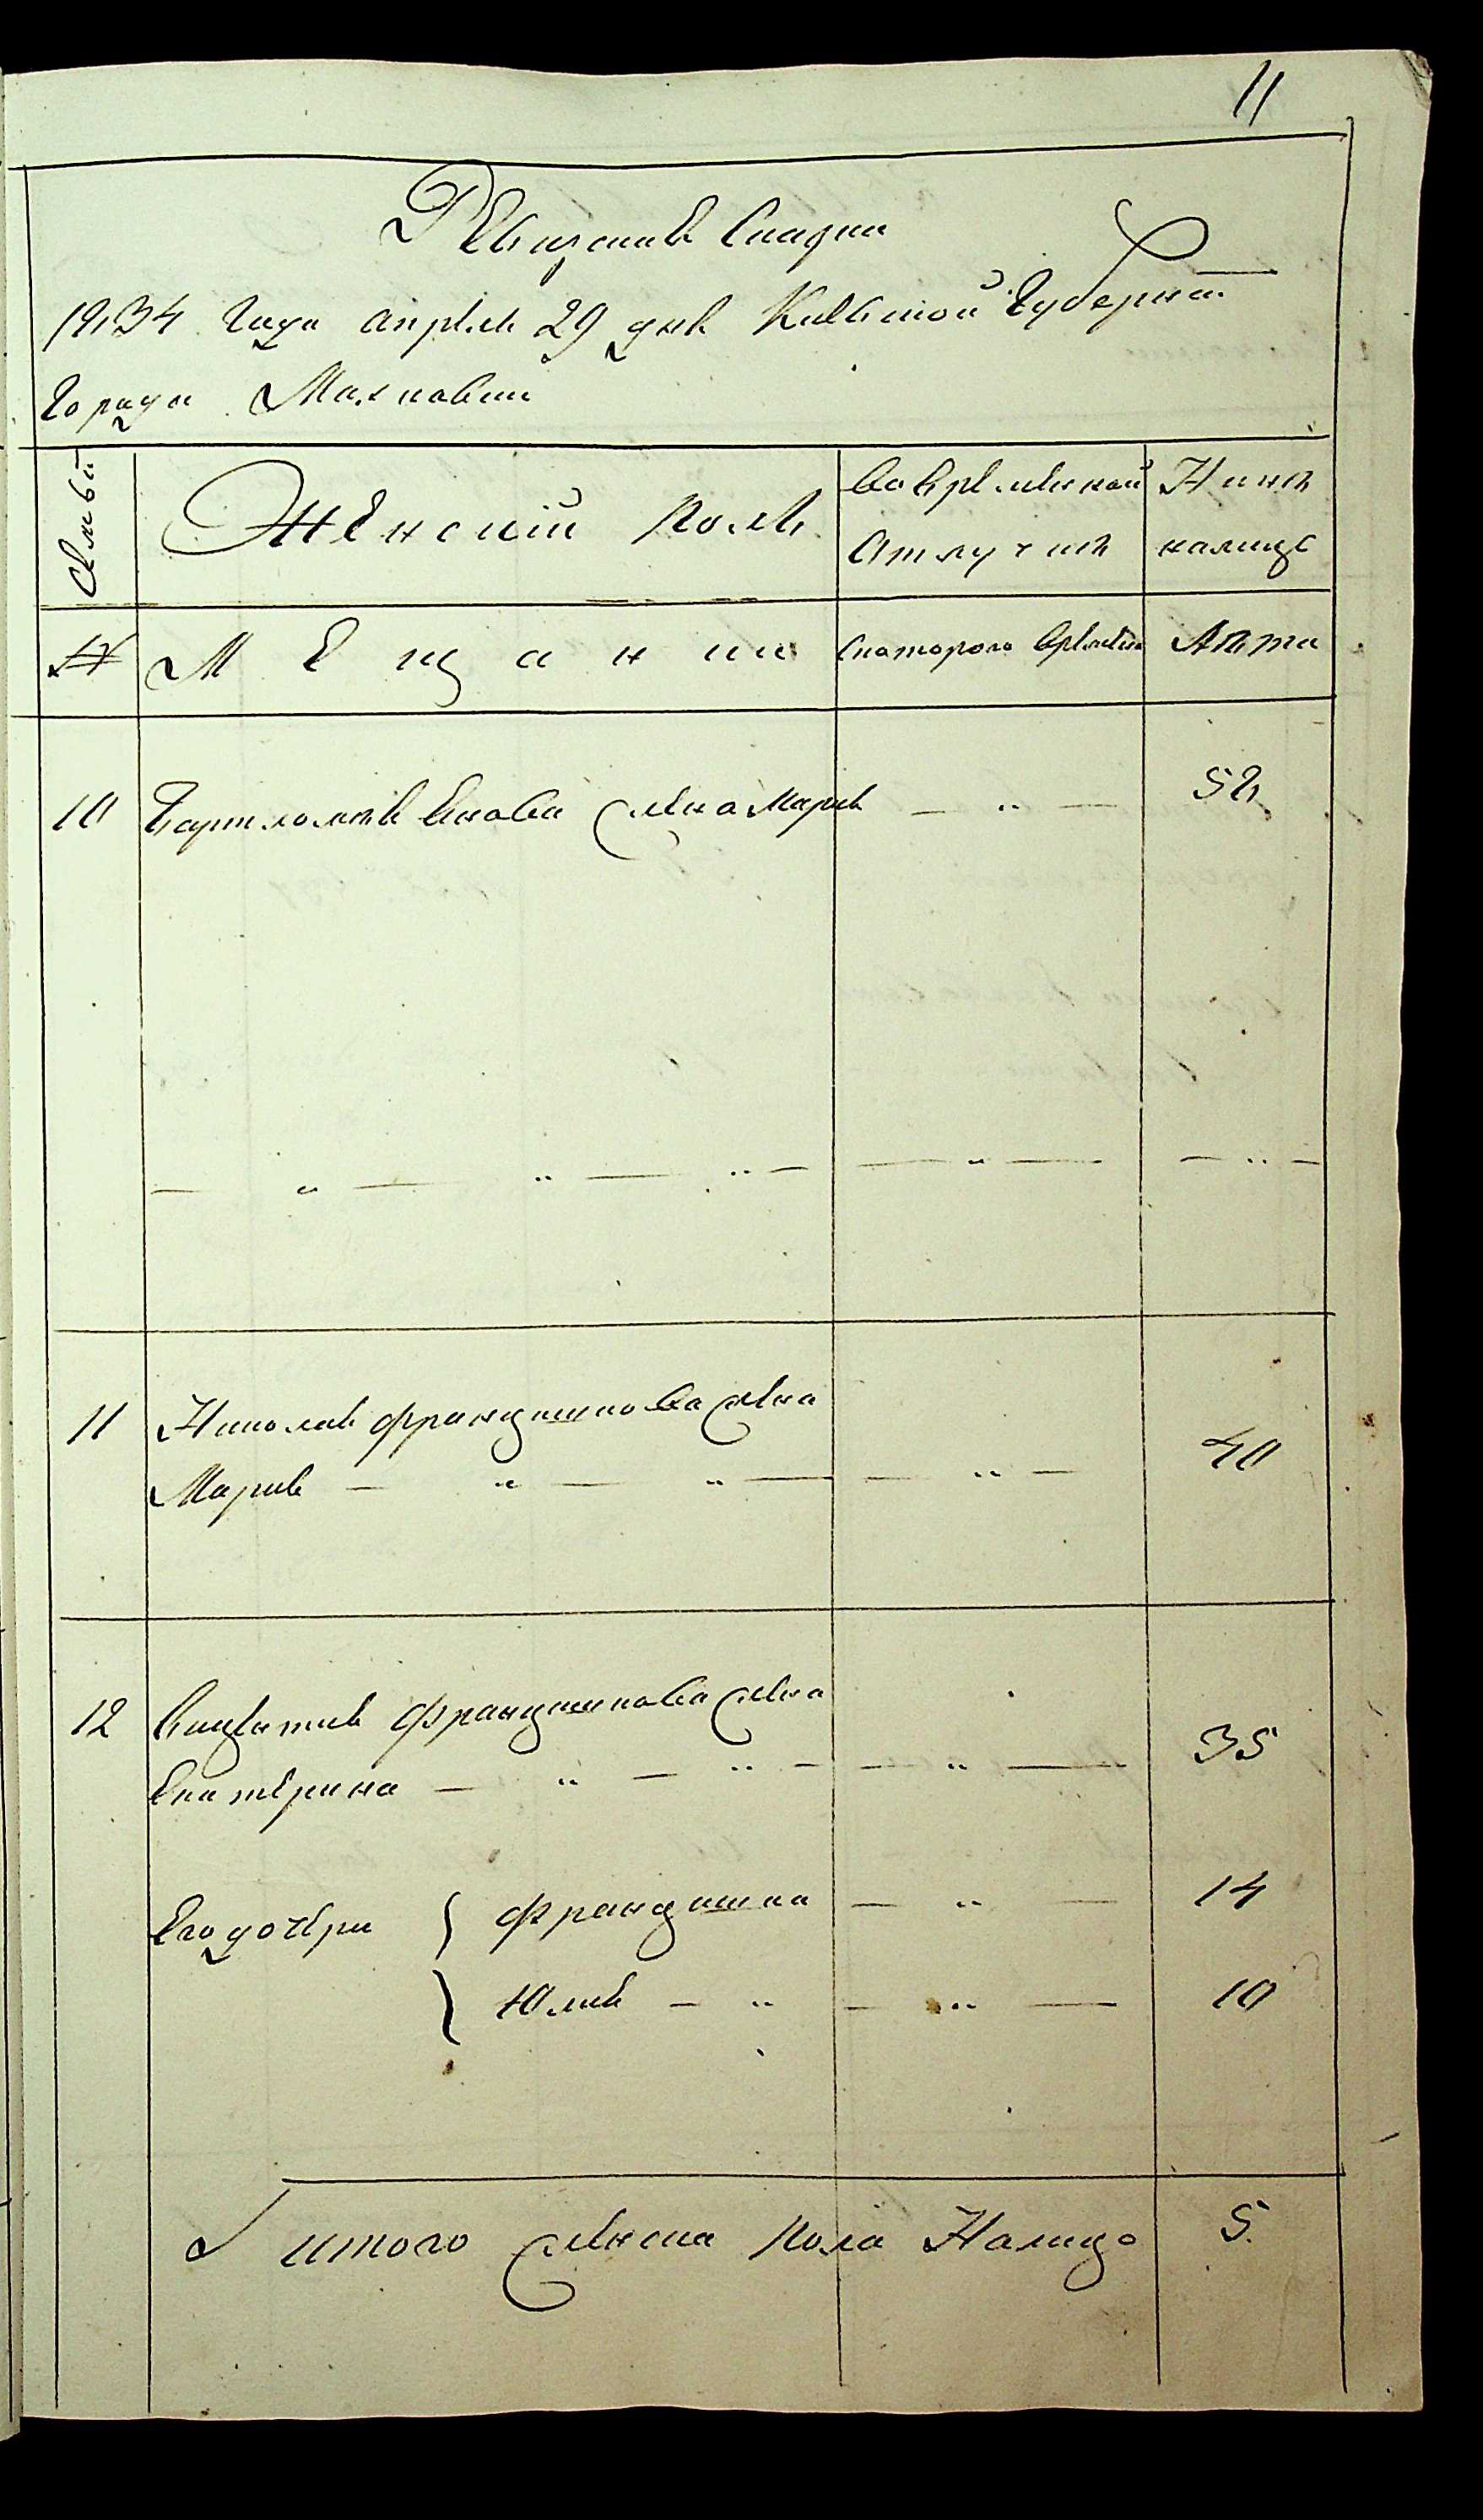 11
Ревизская Сказка
1834 Года апреля 29 дня Киевской Губернии
Города Махновки
Семьи
Женский полъ
Во временной
Отлучкѣ
Нынѣ
налицо
№
Мещанки
Скоторого времени
Лѣта
10 Бартоломея Якова жена Мария — „ — 58
— „ — „ — „ — — „ — — „ —
11 Николая Францишкова жена
Мария — „ — „ — — „ — 40
12 Викентия Францишкова жена
Екатерина — „ — „ — — „ — 35
Его дочери } Францишка — „ — 14
} Юлия — „ — „ — 10
Итого женска пола Налицо 5.